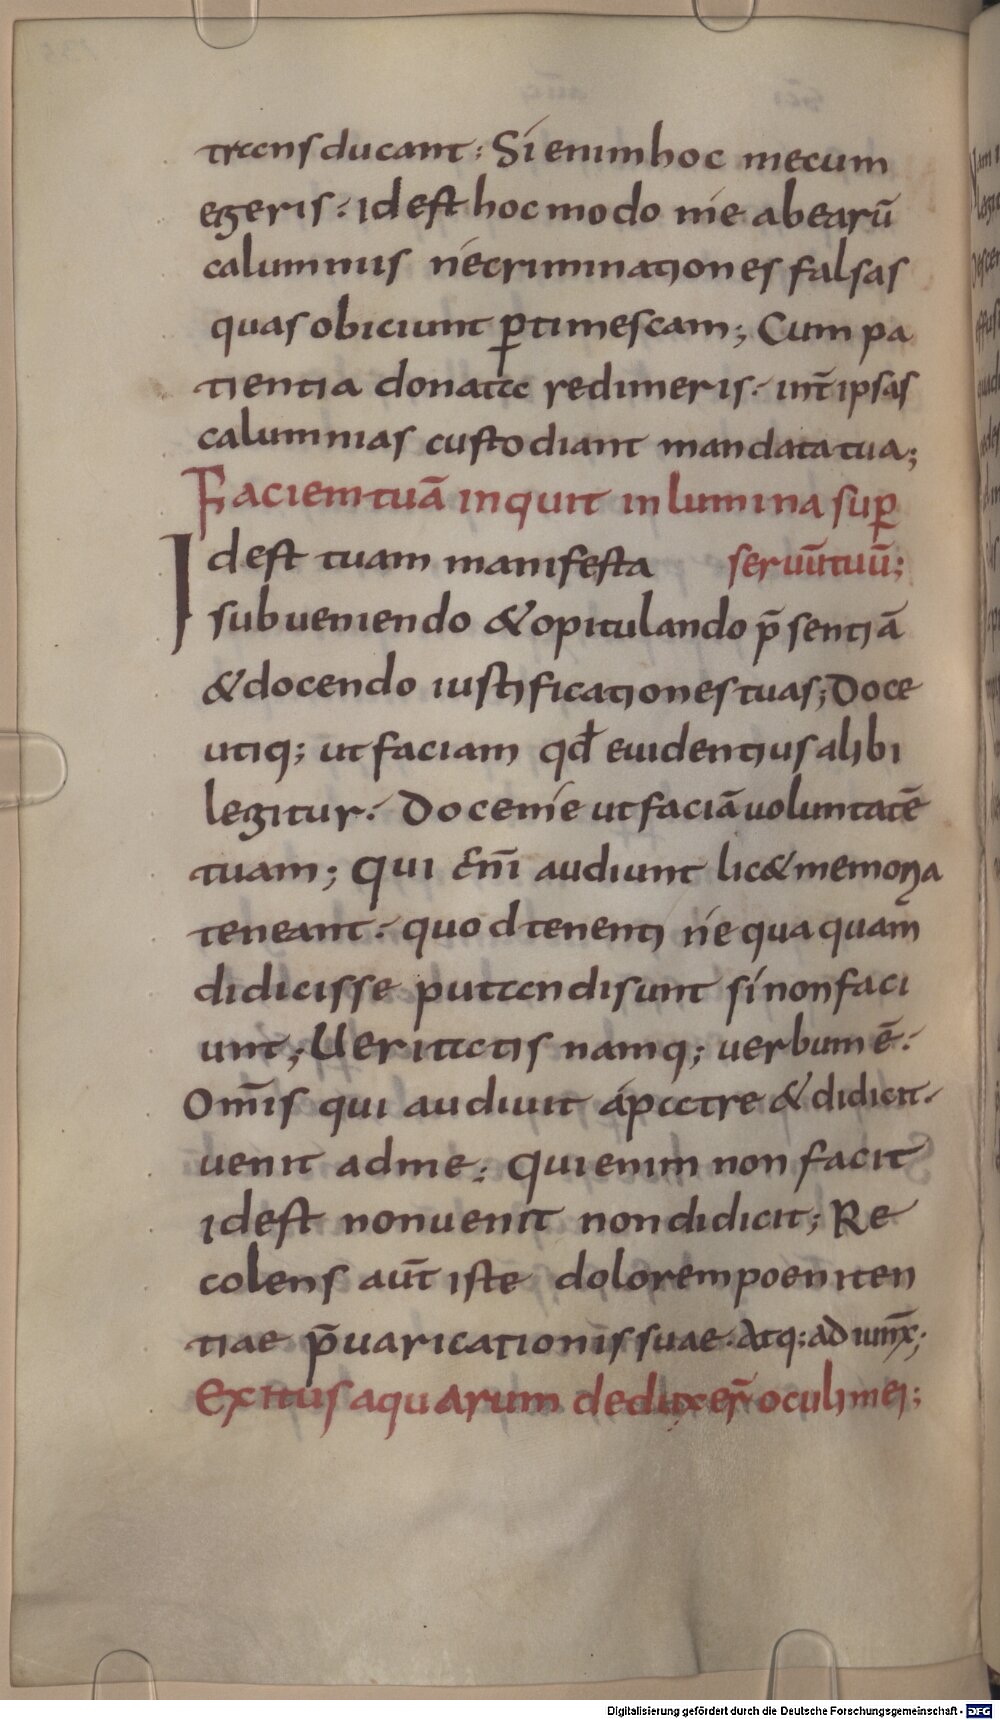 transducant: Si enim hoc mecum
egeris: id est hoc modo me ab earū
calumniis nec criminationes falsas
quas obiciunt ꝑtimescam; Cum pa
tientia donatae redimeris. int̄ ipsas
calumnias custodiant mandata tua;
Faciem tuā inquit inlumina suꝑ
seruū tuū;
Id est tuam manifesta
subueniendo & opitulando p̄sentiā
& docendo iustificationes tuas; Doce
utiq; ut faciam qđ euidentius alibi
legitur. Doce me ut faciā uoluntatē
tuam; Qui eni̅ audiunt lic& memoria
teneant. quod tenent nequaquam
didicisse putandi sunt si non faci
unt; Ueritatis namq; uerbum ē.
Om̄is qui audiuit a patre & didicit.
uenit ad me: Qui enim non facit
id est non uenit non didicit; Re
colens aūt iste dolorem poeniten
tiae p̄uaricationis suae. Atq: adiunx̄;
Exitus aquarum deduxer̄ oculi mei;
Digitalisierung gefördert durch die Deutsche Forschungsgemeinschaft - DFG